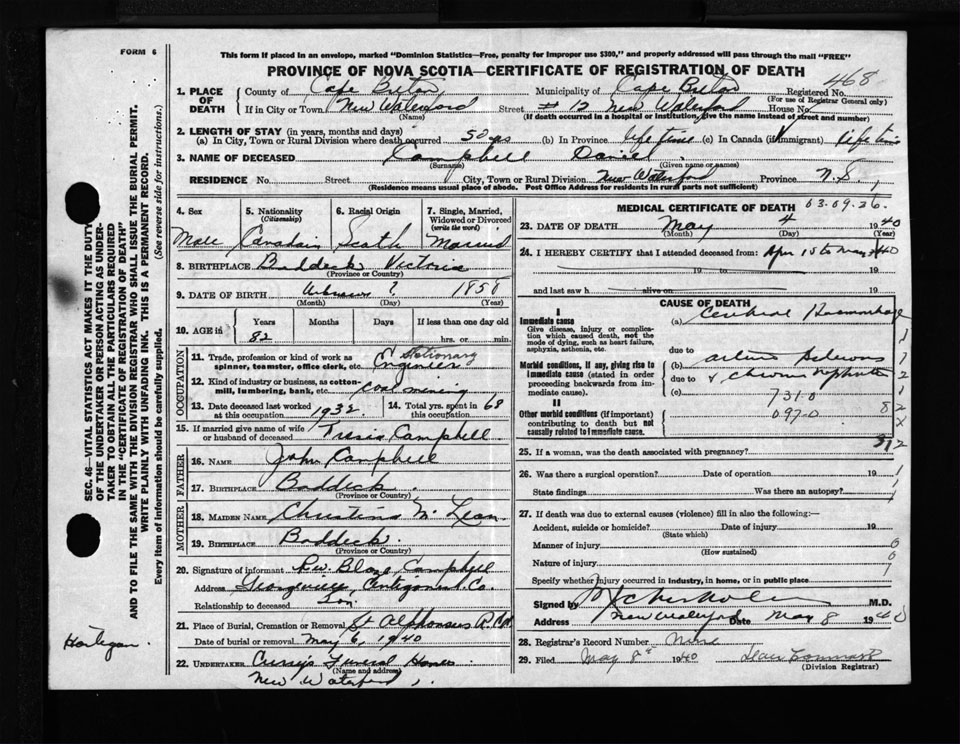 FORM 6
This form if placed in an envelope, marked "Dominion Statistics—Free, penalty for improper use $300," and properly addressed will pass through the mail "FREE"
PROVINCE OF NOVA SCOTIA—CERTIFICATE OF REGISTRATION OF DEATH
468
1. PLACE OF DEATH { County of Cape Breton Municipality of Cape Breton Registered No.
(For use of Registrar General only)
If in City or Town New Waterford Street #12 New Waterford House No.
(Name) (If death occurred in a hospital or institution, give the name instead of street and number)
2. LENGTH OF STAY (in years, months and days)
(a) In City, Town or Rural Division where death occurred 50 yrs (b) In Province life time (c) In Canada (if immigrant) life time
3. NAME OF DECEASED Campbell Daniel
(Surname) (Given name or names)
RESIDENCE No. Street City, Town or Rural Division New Waterford Province N.S.
(Residence means usual place of abode. Post Office Address for residents in rural parts not sufficient)
4. Sex 5. Nationality (Citizenship) 6. Racial Origin 7. Single, Married, Widowed or Divorced (write the word)
Male Canadain Scoth Married
8. BIRTHPLACE Baddeck Victoria
(Province or Country)
9. DATE OF BIRTH ? 1858
(Month) (Day) (Year)
10. AGE in { Years Months Days If less than one day old
82 hrs. or min.
OCCUPATION
11. Trade, profession or kind of work as spinner, teamster, office clerk, etc. Stationary Engineer
12. Kind of industry or business, as cotton-mill, lumbering, bank, etc. coal mining
13. Date deceased last worked at this occupation 1932 14. Total yrs. spent in this occupation 68
15. If married give name of wife or husband of deceased Campbell
FATHER
16. NAME John Campbell
17. BIRTHPLACE Baddeck
(Province or Country)
MOTHER
18. MAIDEN NAME Christina McLean
19. BIRTHPLACE Baddeck
(Province or Country)
20. Signature of informant Rev. Campbell
Address Antigonish Co.
Relationship to deceased Son
21. Place of Burial, Cremation or Removal St Alphonsus R.C.
Date of burial or removal May 6, 1940
22. UNDERTAKER Currys Funeral Home
(Name and address)
New Waterford
MEDICAL CERTIFICATE OF DEATH 03.09.26.
23. DATE OF DEATH May 4 1940
(Month) (Day) (Year)
24. I HEREBY CERTIFY that I attended deceased from: Apr 15 to May 1940
19 to 19
and last saw h alive on 19
CAUSE OF DEATH
I
Immediate cause (a) Cerebral Haemorrhage
Give disease, injury or complication which caused death, not the mode of dying, such as heart failure, asphyxia, asthenia, etc.
due to
Morbid conditions, if any, giving rise to immediate cause (stated in order proceeding backwards from immediate cause). (b) arterio
due to & chronic nephritis
(c) 731.0
II
097-0
Other morbid conditions (if important) contributing to death but not causally related to immediate cause.
25. If a woman, was the death associated with pregnancy?
26. Was there a surgical operation? Date of operation 19
State findings Was there an autopsy?
27. If death was due to external causes (violence) fill in also the following:—
Accident, suicide or homicide? Date of injury 19
(State which)
Manner of injury
(How sustained)
Nature of injury
Specify whether injury occurred in industry, in home, or in public place
Signed by M.D.
Address New Waterford Date May 8 1940
28. Registrar's Record Number Nine
29. Filed May 8th 1940
(Division Registrar)
SEC. 46—VITAL STATISTICS ACT MAKES IT THE DUTY
OF THE UNDERTAKER OR PERSON ACTING AS UNDER-
TAKER TO OBTAIN ALL THE PARTICULARS REQUIRED
IN THE "CERTIFICATE OF REGISTRATION OF DEATH"
AND TO FILE THE SAME WITH THE DIVISION REGISTRAR WHO SHALL ISSUE THE BURIAL PERMIT.
WRITE PLAINLY WITH UNFADING INK. THIS IS A PERMANENT RECORD.
Every item of information should be carefully supplied. (See reverse side for instructions.)
Hartegan